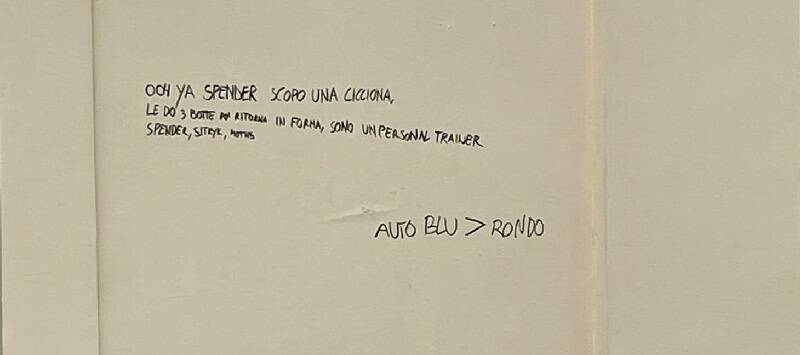 OCH YA SPENDER SCOPO UNA CICCIONA,
LE DO 3 BOTTE RITORNA IN FORMA, SONO UN PERSONAL TRAINER
SPENDER, SITRYK,
AUTO BLU > RONDO